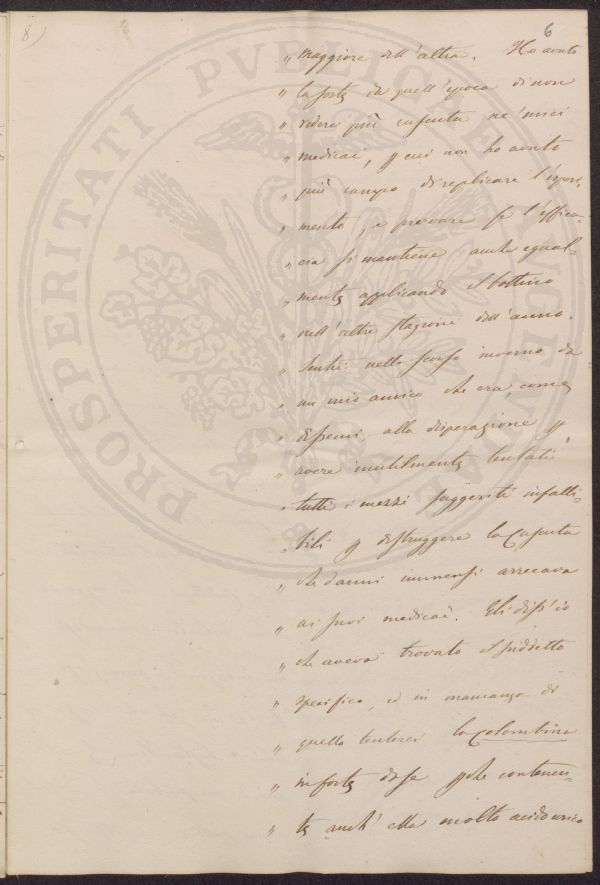 8)
6
" maggiore dell'altra. Ho avuto
" la sorte da quell'epoca di non
" vedere più cuscuta ne' miei
" medicai, p cui non ho avuto
" più campo di replicare l'speri-
" mento, e provare se l'effica-
" cia si mantiene anche egual-
" mente applicando il bottino
" nell'altre stagioni dell'anno.
" Sentii nello scorso inverno da
" un mio amico che era, come
" dissemi, alla disperazione p
" avere inutilmente tentati
" tutti i mezzi suggeriti infalli-
" bili p distruggere la Cuscuta
" che danni immensi arrecava
" ai suoi medicai. Gli diss'io
" che aveva trovato il suddetto
" specifico, ed in mancanza di
" quello tenterei la Colombina
" in forte dose pche contenen-
" te anch'ella molto acido urico
PROSPERITATI PVBLICAE AVGENDAE